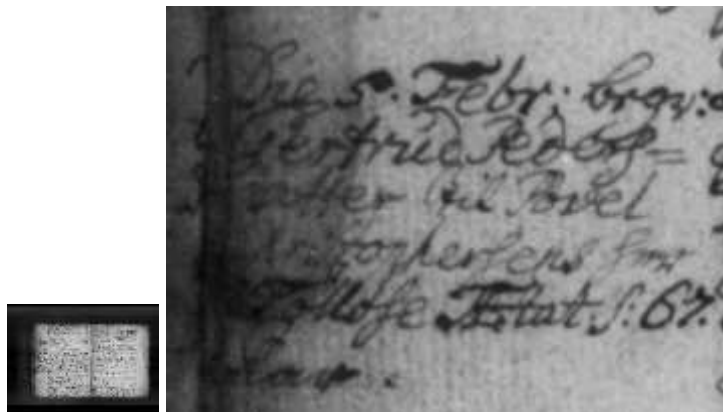 Die 5. Febr: begr:
Gertrud Peders=
datter til Povel
Christophersens
Tølløse Ætat. s: 67.